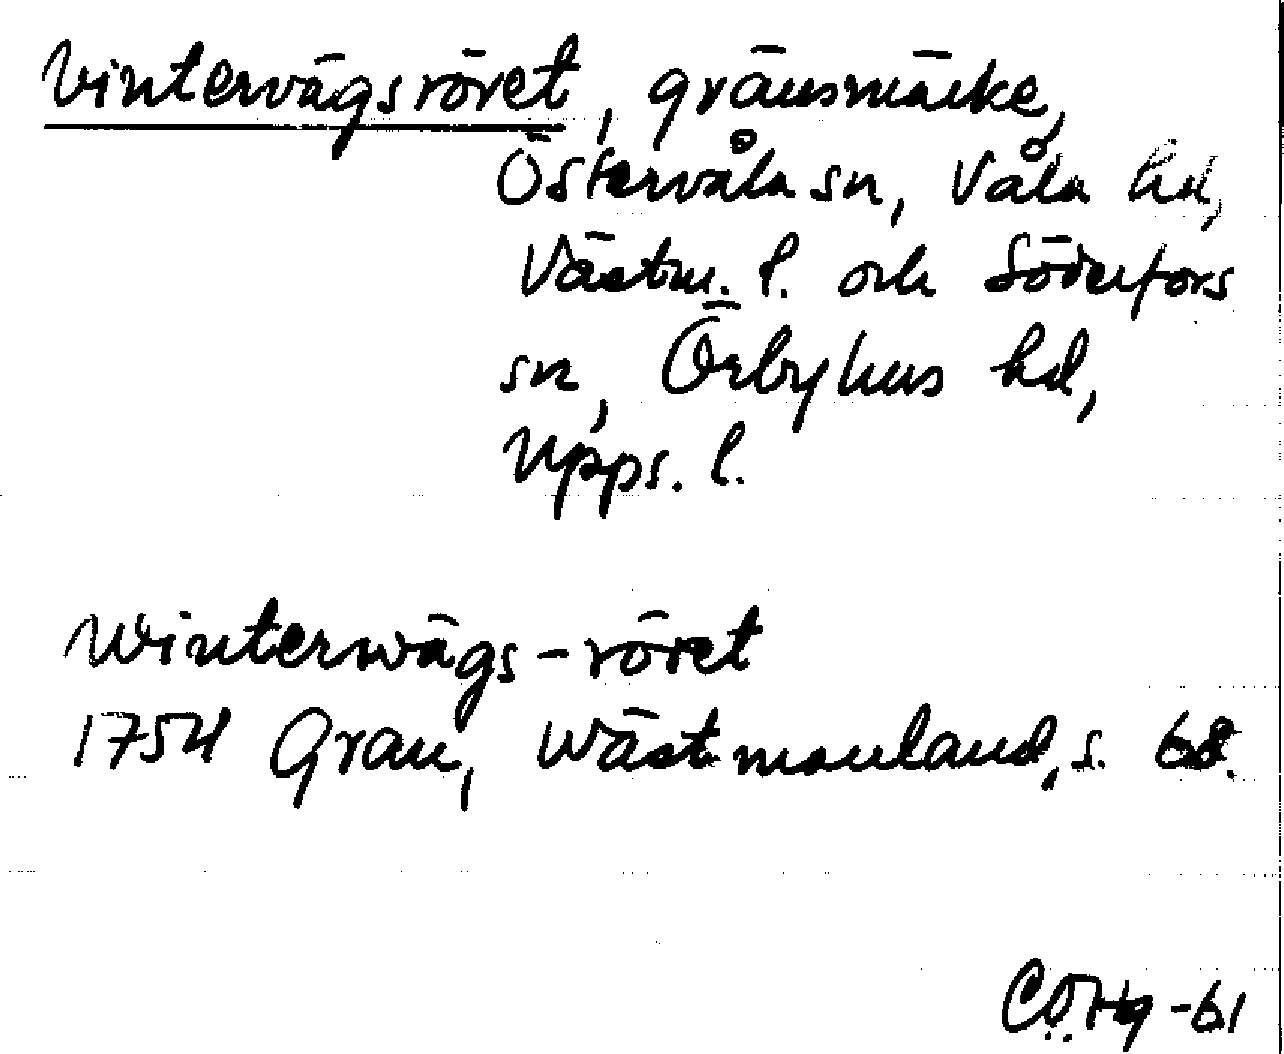 Vintervägsröret, gränsmärke,
Östervåla sn, Våla hd,
Västm. l. och Söderfors
sn, Örbyhus hd,
Upps. l.
Winterwägs-röret
1754 Grau, Wästmanland, s. 68.
CÖHg -61